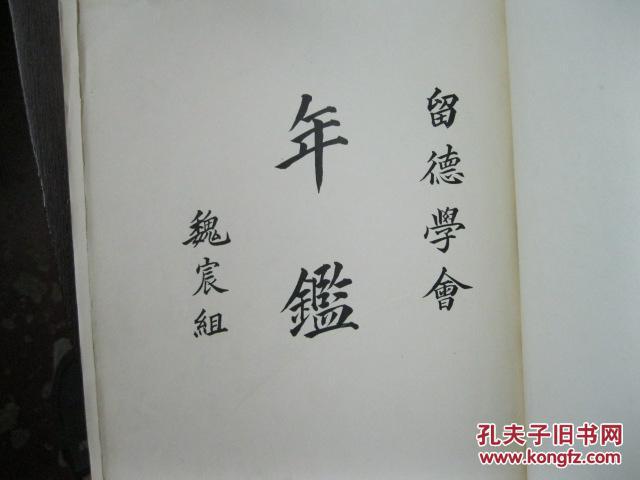 留德學會
年鑑
魏宸組
孔夫子旧书网
www.kongfz.com